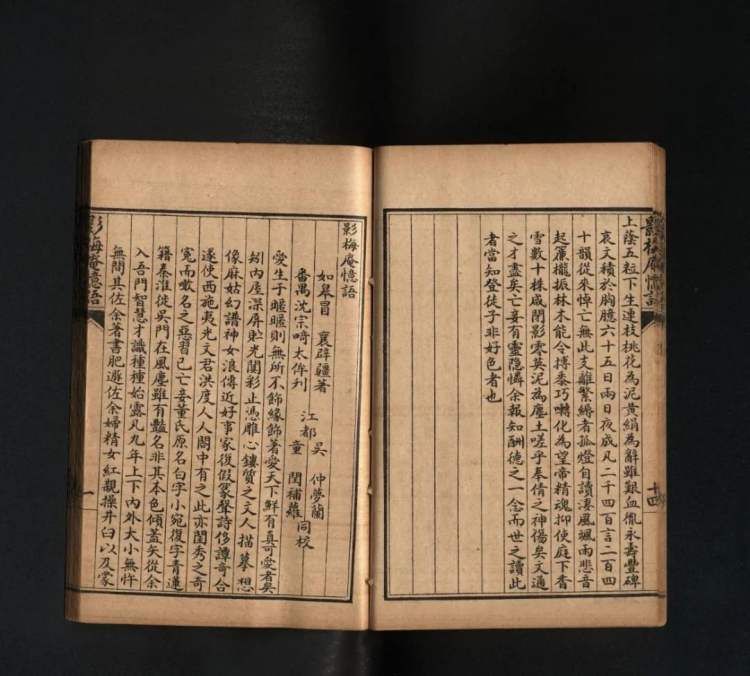 影梅庵憶語
十四
上蔭五粒下生連枝桃花為泥黃絹為辭雖艱血胤永壽豐碑
哀文積於胸臆六十五日兩日夜成凡二千四百言二百四
十韻從來悼亡無此支離繁縟者孤燈自讀淒風颯雨悲音
起簾櫳振林木能令搏黍巧囀化為望帝精魂抑使庭下香
雪數十株咸閉影零英泥為塵土嗟乎奉倩之神傷矣文通
之才盡矣亡妾有靈隱憐余報知酬德之一念而世之讀此
者當知登徒子非好色者也
影梅庵憶語
如皋冒　襄辟疆著
番禺沈宗畸太侔刋
江都吳　仲夢蘭
童　閏補蘿同校
愛生于暱暱則無所不飾緣飾著愛天下鮮有真可愛者矣
矧内屋深屏貯光闃彩止憑雕心鏤質之文人描摹想
像麻姑幻譜神女浪傳近好事家復假篆聲詩侈譚奇合
遂使西施夷光文君洪度人人閣中有之此亦閨秀之奇
冤而噉名之惡習已亡妾董氏原名白字小宛復字青蓮
籍秦淮徙吳門在風塵雖有豔名非其本色傾蓋矢從余
入吾門智慧才識種種始露凡九年上下内外大小無忤
無間其佐余著書肥遯佐余婦精女紅親操井臼以及蒙
影梅庵憶語
一